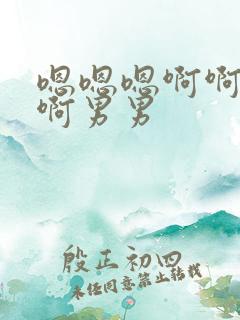 嗯嗯嗯啊啊
啊男男
殷正初四
未经同意禁止转载